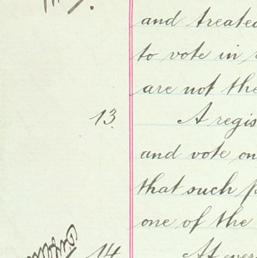 and treated
to vote in
are not the
13. A regis
and vote on
that such p
one of the
14. At ever